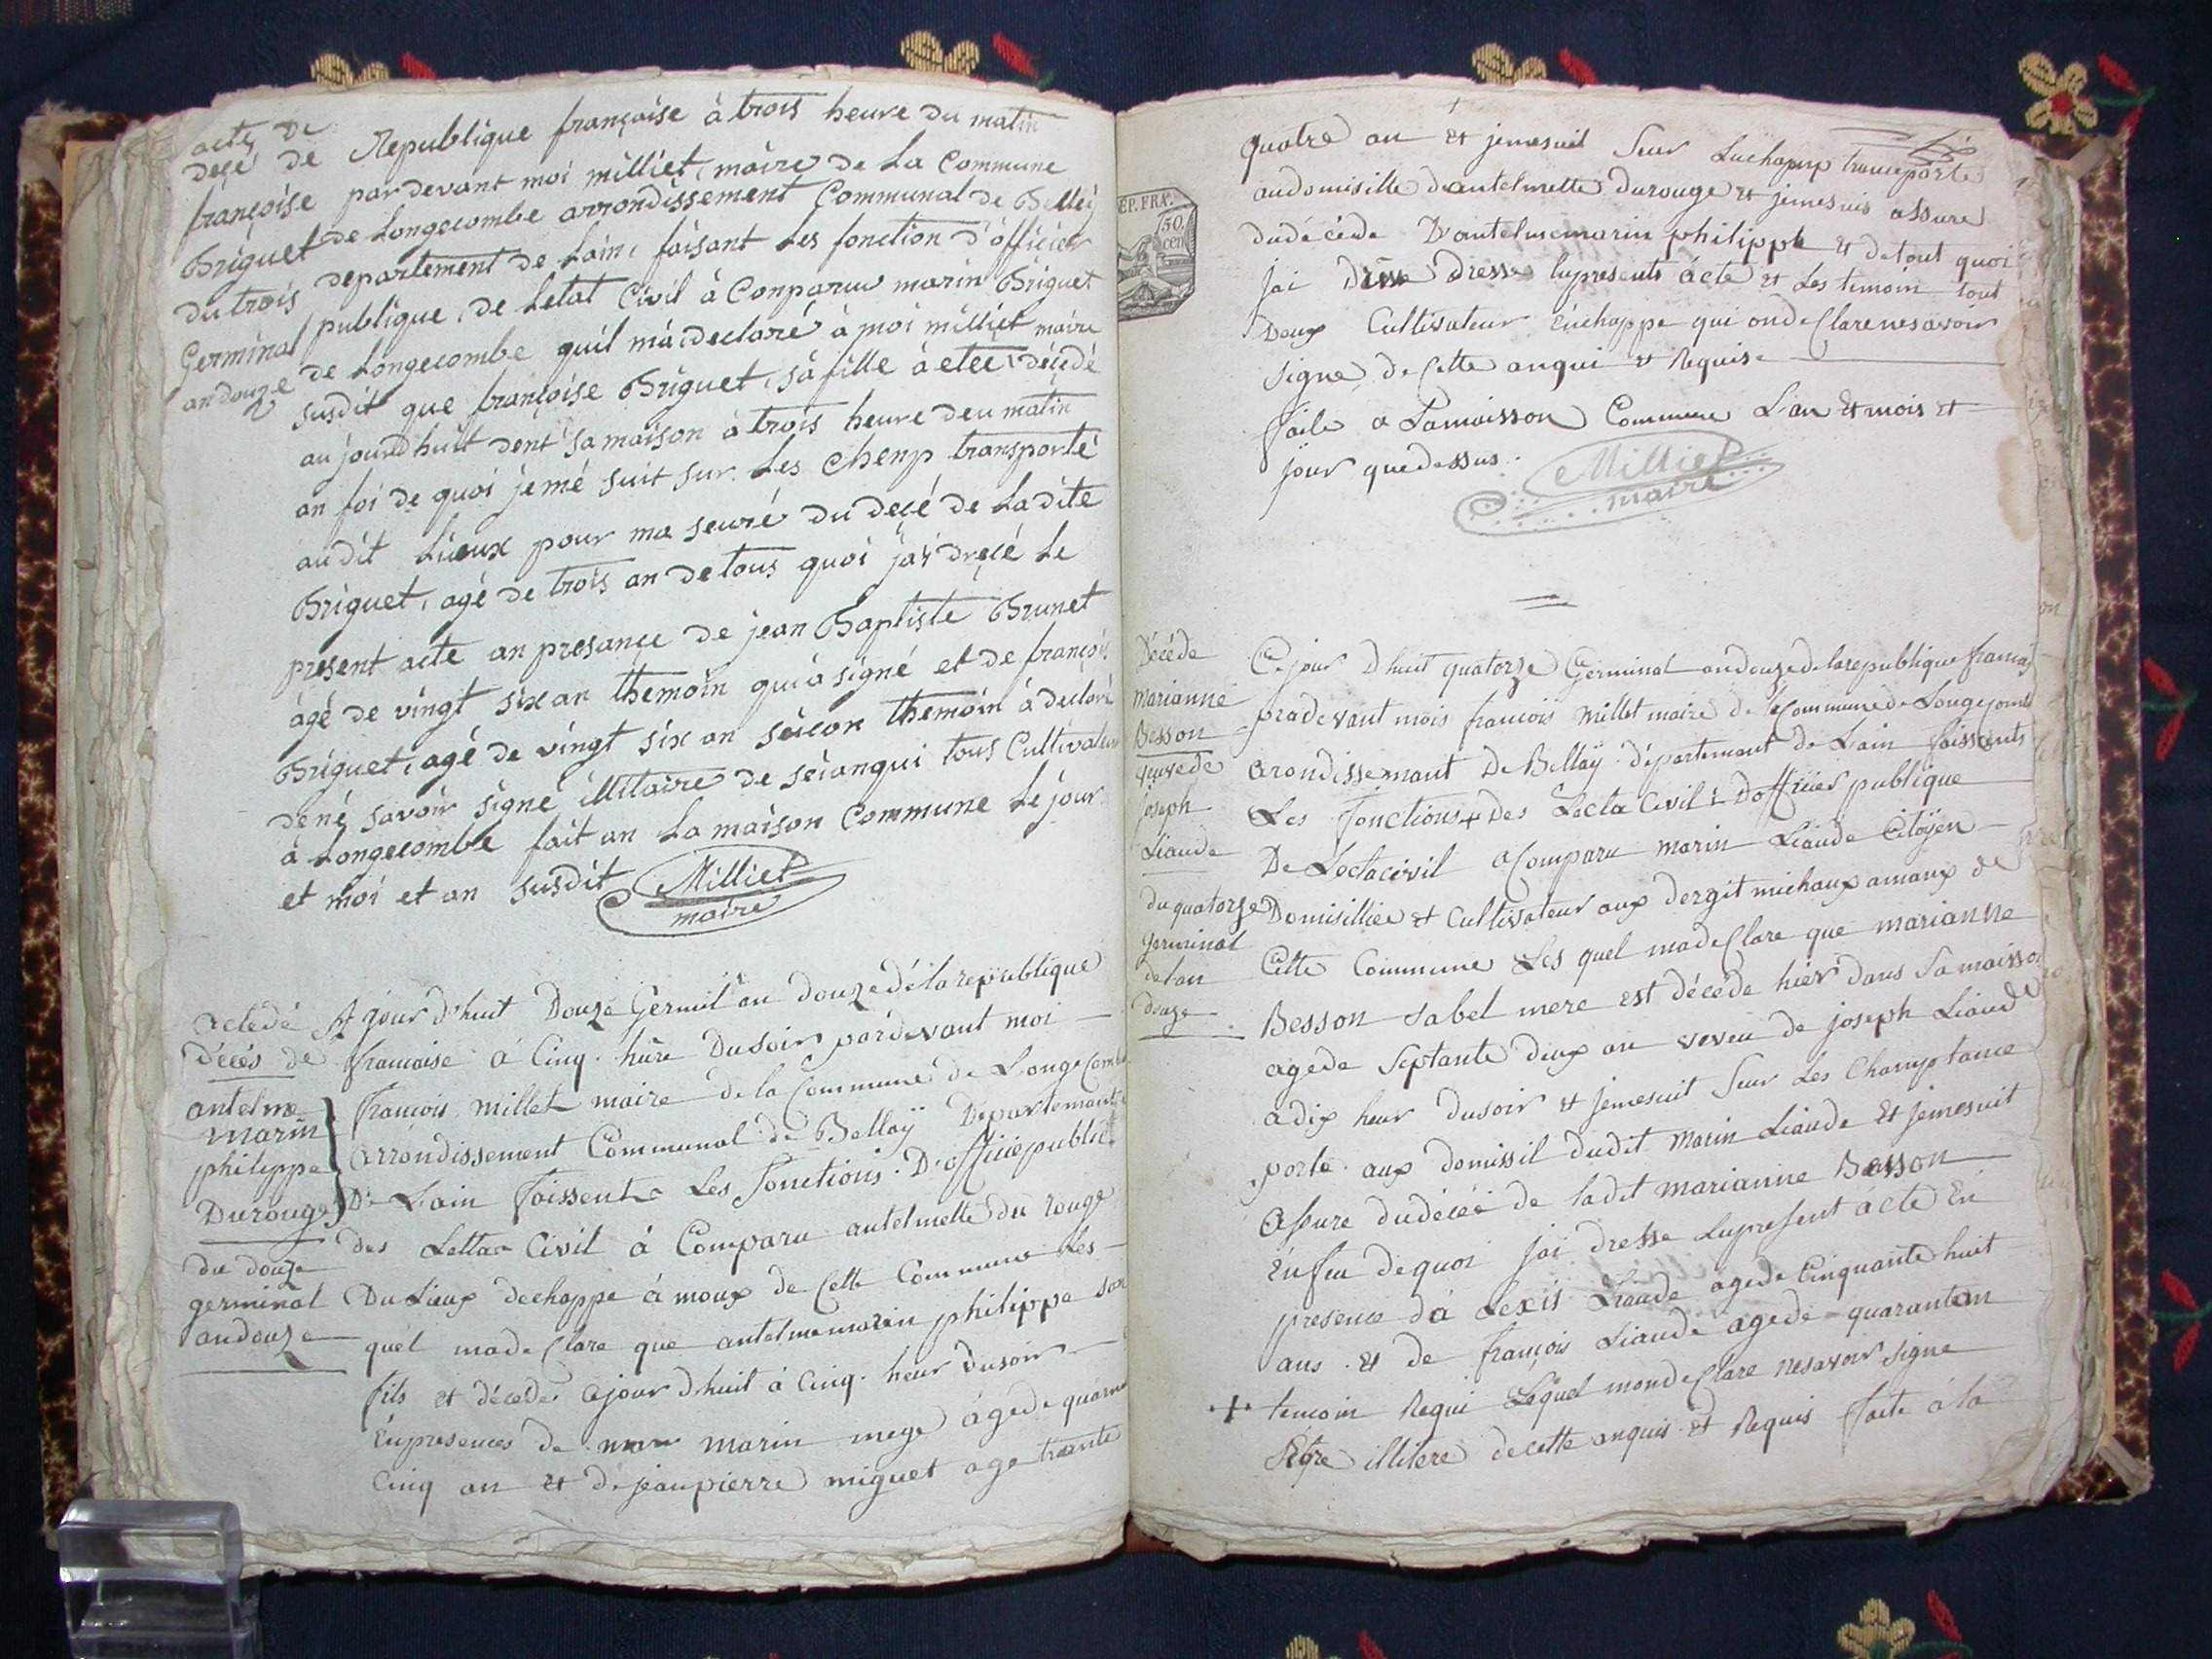 acte de
decé de
françoise
Briguet
du trois
Germinal
an douze
Republique françoise à trois heure du matin
par devant moi milliet, maire de La Commune
de Longecombe arrondissement Communal de Belleÿ
departement de Lain, faisant Les fonction d'officier
publique, de Letat Civil à Conparu marin Briguet
de Longecombe quil mà declaré à moi milliet maire
susdit que françoise Briguet, sà fille à etee décédé
aujourdhuit dent sa maison à trois heure deu matin
an foi de quoi jemé suit sur Les chenp transporté
audit Lieux pour ma seuré du decé de Ladite
Briguet, agé de trois an de tous quoi jaÿ drecé Le
present acte an presance de jean Baptiste Brunet
àgé de vingt six an themoin qui à signé et de françois
Briguet, agé de vingt six an sècon themoin à declaré
dené savoir signé illitaire de sèianqui tous Cultivateur
à Longecombe fait an La maison Commune Le jour
et moi et an susdit Milliet
maire
acte dé
décés de
antelme
marin
philippe
Durouge
du douze
germinal
an douze
A jour d'huit Douze Germil an douze dé la republique
francoise à Cinq hure Du soir pardevant moi
francois millet maire de la Commune de Longecombe
arrondissement Communal de Bellaÿ Departement
De Lain faissent Les fonctions D'officié public
des Letta Civil á Comparu antelmette du rouge
Du Lieux dechappe á moux de Cette Commune Les
quel made Clare que antelme marin philippe son
fils et décéde ajour dhuit à Cinq heur du soir
En presences de marin mege ágede quarante
Cinq an et de jean pierre miguet age trante
quatre an et jemesuit Seur Luchamp transporte
audomisille dantelmette durouge et jemesuis assure
du décéde Dantelme marin philippe et de tout quoi
jai dresse lu presents ácte et Les temoin tout
Deux Cultivateur Enchappe qui onde Clare ne savoir
signe de Cette anqui et Requise
faite a La maisson Commune L'an et mois et
jour que dessus.
Milliet
maire
EP. FRA.
50
cen
Décéde
marianne
Besson
veuve de
joseph
Liaude
du quatorze
germinal
de lan
douze
Ce jour D huit quatorze Germinal an douze de la republique francais
pradevant mois francois millet maire de la Commune de Longecombe
arondissemant De Bellaÿ département de L'ain faissents
Les fonctions + Des Lecta Civil Dofficiér publique
De Lectacivil a Comparu marin Liaude Citoÿen
Domisilliée et Cultivateur aux dergit michaux amaux de
Cette Commune Les quel made Clare que marianne
Besson sabel mere est décéde hier dans sa maisson
agede septante deux an veveu de joseph Liaude
a dix heur du soir et jemesuit Seur Les Champ tance
porte aux domissil dudit marin Liaude Et jemesuit
assure du décéé de ladit marianne Besson
En feu de quoi jai dresse Lupresent ácte En
presence dá Lexis Liaude agede Cinquante huit
ans et de francois Liaude agede quarante an
+ temoin Requi Lequel monde Clare ne savoir signe
Setre illitere de cette anquis et Requis faite á la